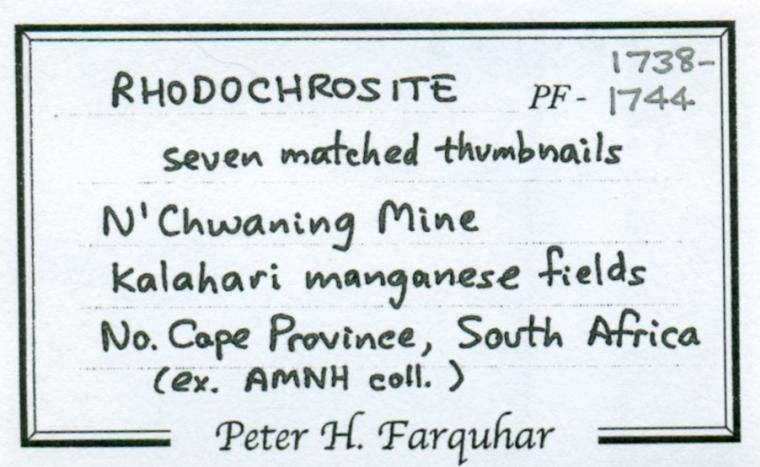 RHODOCHROSITE PF - 1738-
1744
seven matched thumbnails
N'Chwaning Mine
Kalahari manganese fields
No. Cape Province, South Africa
(ex. AMNH coll.)
Peter H. Farquhar